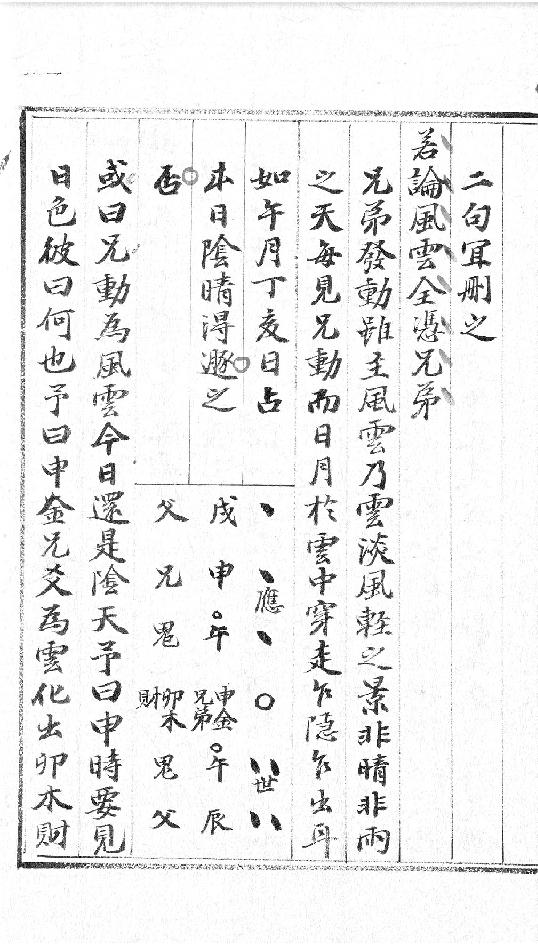 二句宜刪之
若論風雲全憑兄弟
兄弟發動雖主風雲乃雲淡風輕之景非晴非雨
之天每見兄動而日月於雲中穿走乍隱乍出耳
如午月丁亥日占
本日陰晴得遯之
否
應 世
戌 申 午 申金兄弟 午 辰
父 兄 鬼 卯木財 鬼 父
或曰兄動為風雲今日還是陰天予曰申時要見
日色彼曰何也予曰申金兄爻為雲化出卯木財